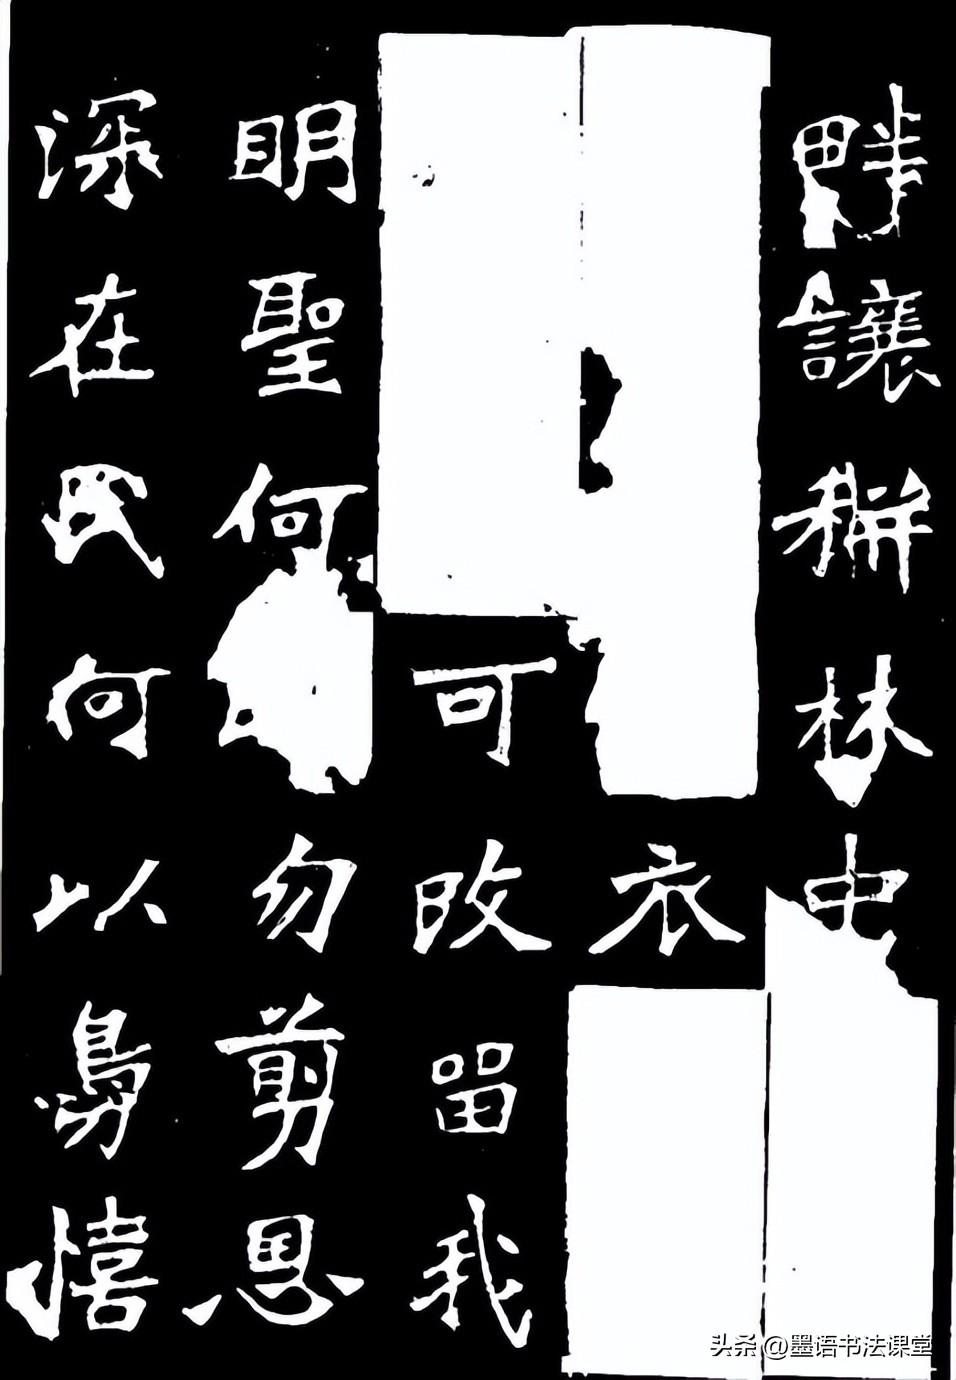 畔讓耕林中
衣
可改留我
明聖何勿剪恩
深在民何以鳥憘
头条 @墨语书法课堂